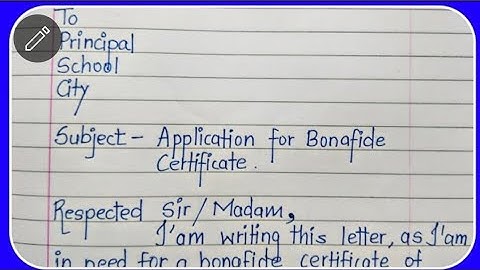 To
Principal
School
City
Subject - Application for Bonafide
Certificate.
Respected Sir/Madam,
I'am writing this letter, as I'am
in need for a bonafide certificate of